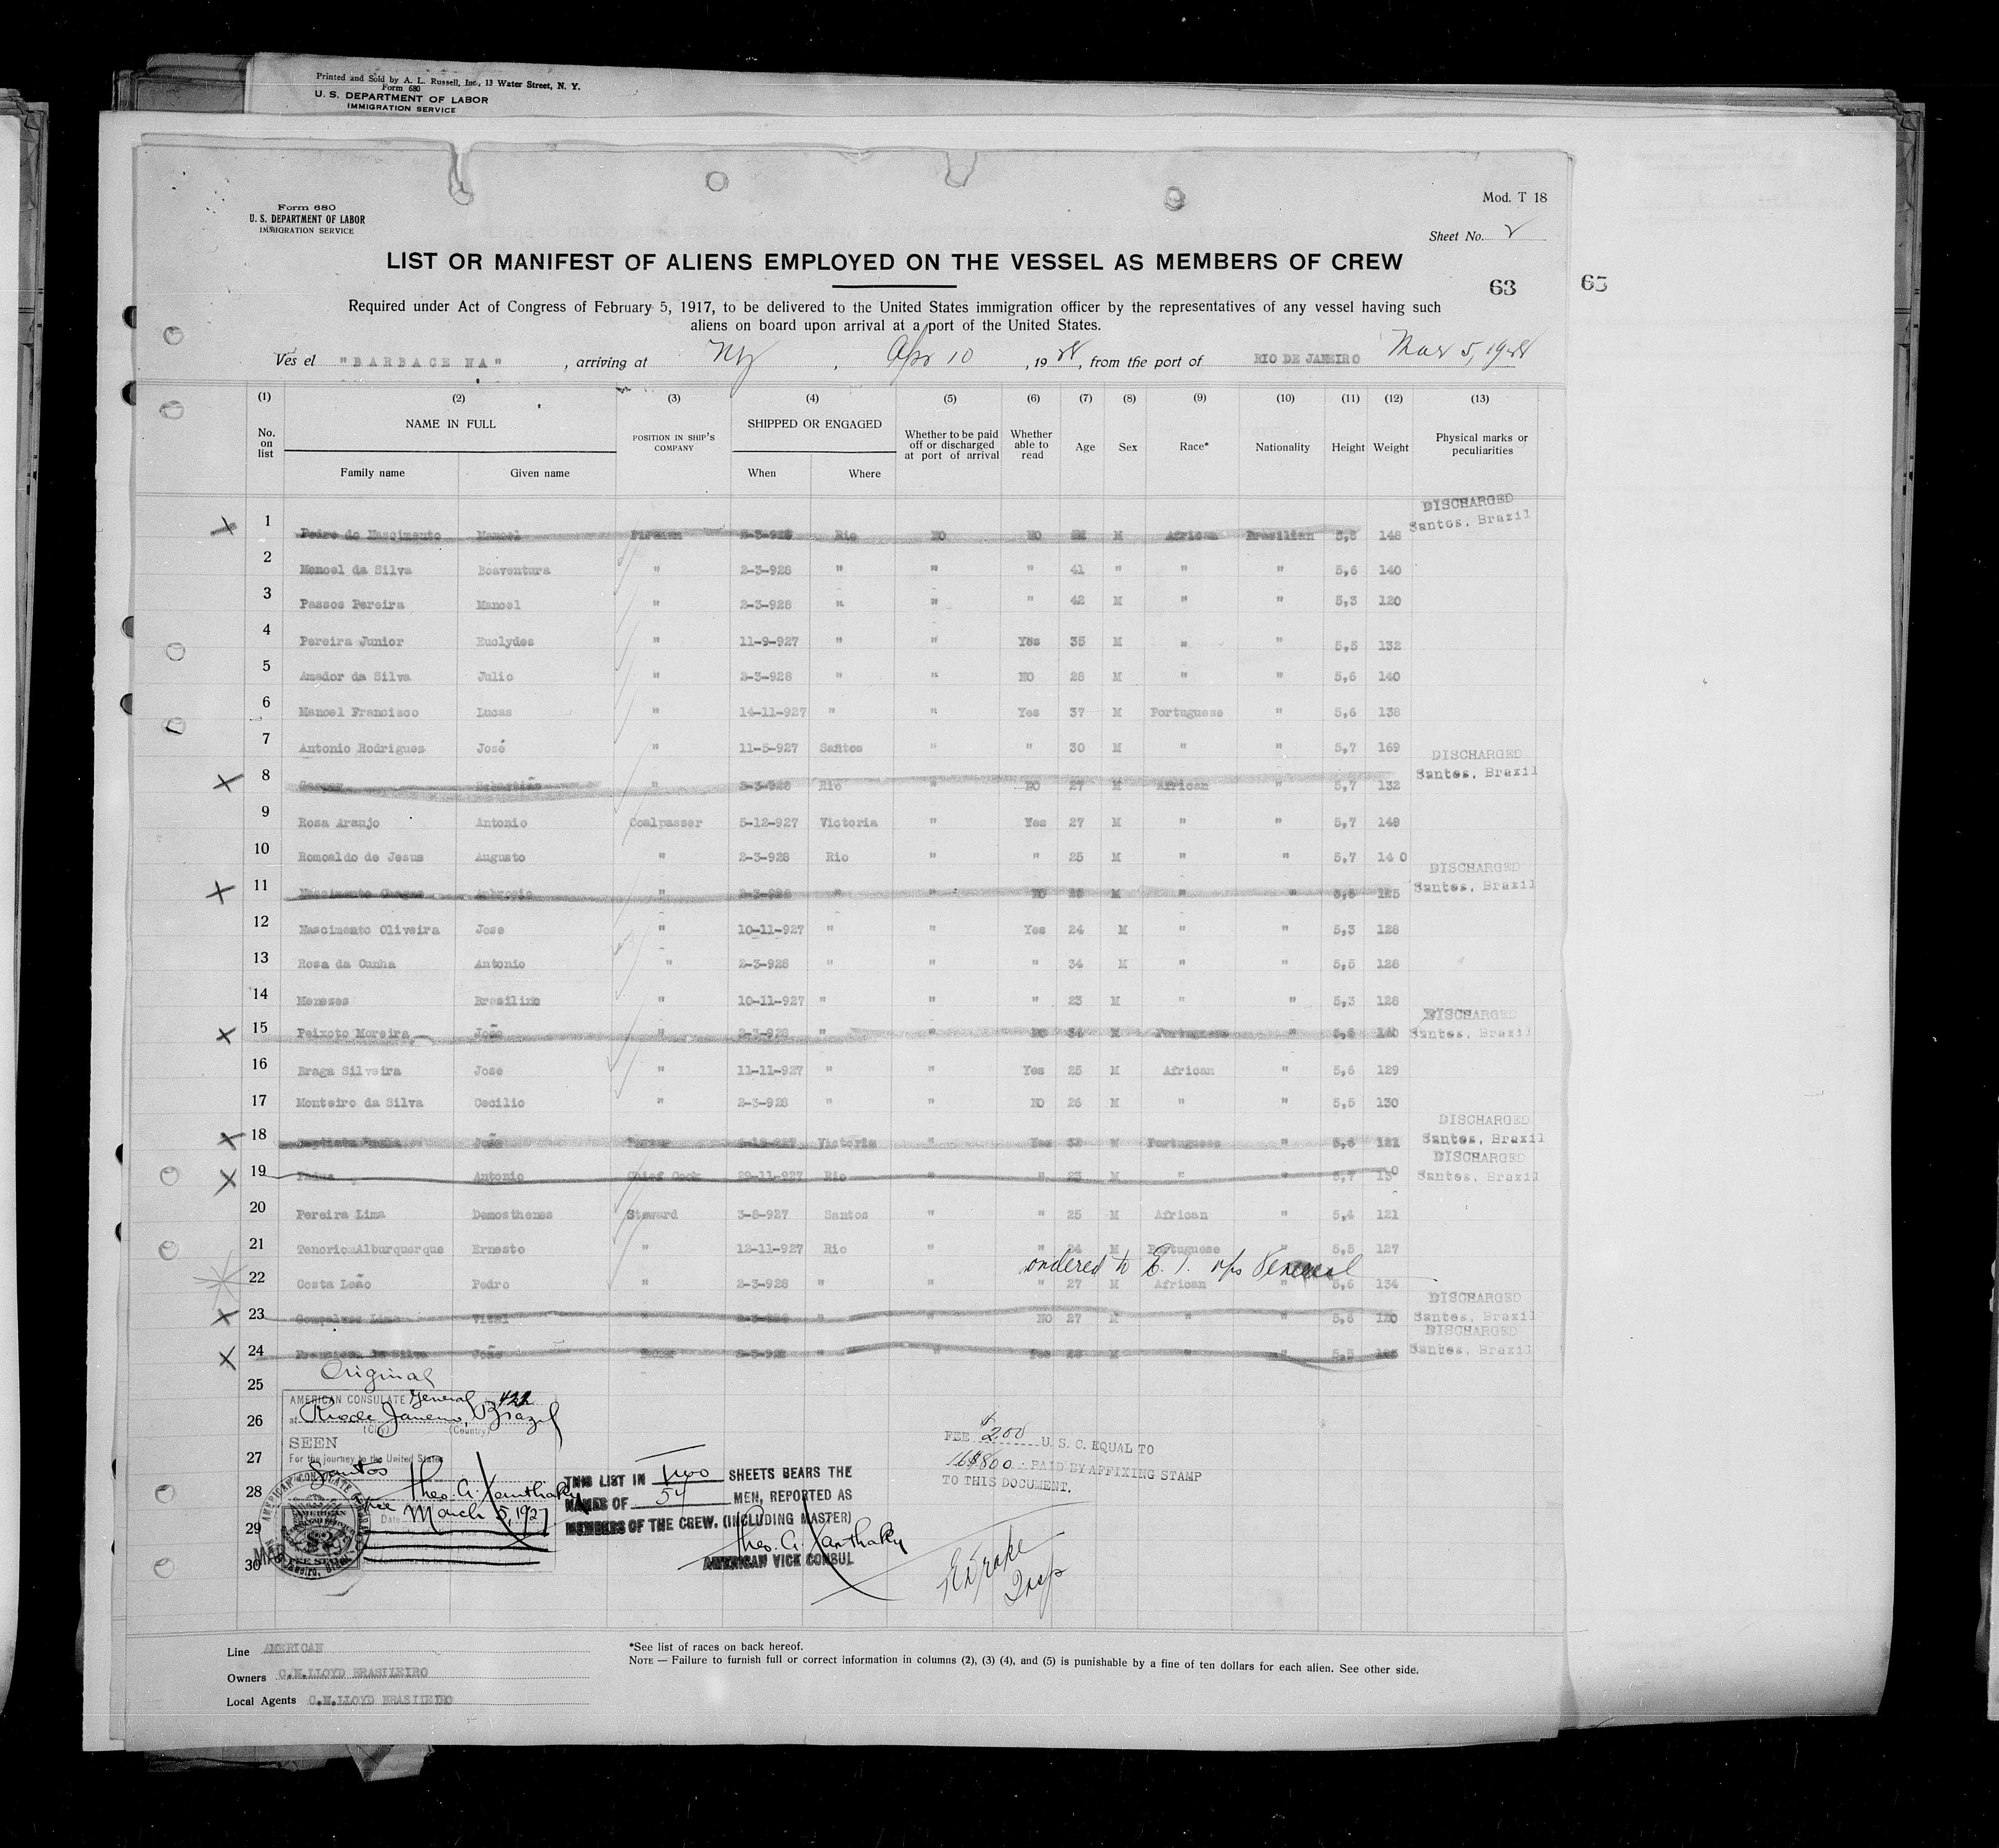 Printed and Sold by A. L. Russell, Inc., 13 Water Street, N. Y.
Form 680
U. S. DEPARTMENT OF LABOR
IMMIGRATION SERVICE
Mod. T 18
Form 680
U. S. DEPARTMENT OF LABOR
IMMIGRATION SERVICE
Sheet No. 2
LIST OR MANIFEST OF ALIENS EMPLOYED ON THE VESSEL AS MEMBERS OF CREW
63 65
Required under Act of Congress of February 5, 1917, to be delivered to the United States immigration officer by the representatives of any vessel having such
aliens on board upon arrival at a port of the United States.
Ves el "BARBACE NA", arriving at NY, Apr 10, 1928, from the port of RIO DE JANEIRO Mar 5, 1928
(1) (2) (3) (4) (5) (6) (7) (8) (9) (10) (11) (12) (13)
No. on list NAME IN FULL POSITION IN SHIP'S COMPANY SHIPPED OR ENGAGED Whether to be paid off or discharged at port of arrival Whether able to read Age Sex Race* Nationality Height Weight Physical marks or peculiarities
Family name Given name When Where
1 Pedro do Nascimento Manoel Fireman 2-3-928 Rio NO NO M African Brasilian 5,8 148 DISCHARGED Santos, Brazil
2 Manoel da Silva Boaventura " 2-3-928 " " " 41 " " " 5,6 140
3 Passos Pereira Manoel " 2-3-928 " " " 42 M " " 5,3 120
4 Pereira Junior Euclydes " 11-9-927 " " Yes 35 M " " 5,5 132
5 Amador da Silva Julio " 2-3-928 " " NO 28 M " " 5,6 140
6 Manoel Francisco Lucas " 14-11-927 " " Yes 37 M Portuguese " 5,6 138
7 Antonio Rodrigues José " 11-5-927 Santos " " 30 M " " 5,7 169
8 Gaspar Sebastião " 2-3-928 Rio " NO 27 M African " 5,7 132 DISCHARGED Santos, Brazil
9 Rosa Araujo Antonio Coalpasser 5-12-927 Victoria " Yes 27 M " " 5,7 149
10 Romoaldo de Jesus Augusto " 2-3-928 Rio " " 25 M " " 5,7 14 0
11 Nascimento Chagas Ambrosio " 2-3-928 " " NO 25 M " " 5,5 125 DISCHARGED Santos, Brazil
12 Nascimento Oliveira Jose " 10-11-927 " " Yes 24 M " " 5,3 128
13 Rosa da Cunha Antonio " 2-3-928 " " " 34 M " " 5,5 128
14 Meneses Brasilino " 10-11-927 " " " 23 M " " 5,3 128
15 Peixoto Moreira João " 2-3-928 " " NO 34 M Portuguese " 5,6 140 DISCHARGED Santos, Brazil
16 Braga Silveira Jose " 11-11-927 " " Yes 25 M African " 5,6 129
17 Monteiro da Silva Cecilio " 2-3-928 " " NO 26 M " " 5,5 130
18 Baptista João Victoria " Yes 32 M Portuguese " 5,6 121 DISCHARGED Santos, Brazil
19 Antonio Chief Cook 29-11-927 Rio " " 23 M " " 5,7 130 DISCHARGED Santos, Brazil
20 Pereira Lima Demosthenes Steward 3-8-927 Santos " " 25 M African " 5,4 121
21 TenorioAlburquerque Ernesto " 12-11-927 Rio " " 24 M Portuguese " 5,5 127
ordered to E. I.
22 Costa Leão Pedro " 2-3-928 " " 27 M African " 5,6 134
23 Gonçalves Lima Vital " 2-3-928 " NO 27 M " " 5,6 120 DISCHARGED Santos, Brazil
24 Francisco da Silva João 2-3-928 " " Yes 28 M " " 5,5 DISCHARGED Santos, Brazil
25
26
27
28
29
30
Original
AMERICAN CONSULATE General 422
at Rio de Janeiro, Brazil
(City) (Country)
SEEN
For the journey to the United States
Santos
Theo. A. Xanthaky
Date March 5, 1927
THIS LIST IN Two SHEETS BEARS THE
NAMES OF 54 MEN, REPORTED AS
MEMBERS OF THE CREW. (INCLUDING MASTER)
Theo. A. Xanthaky
AMERICAN VICE CONSUL
FEE $2.00 U. S. C. EQUAL TO
16$800 PAID BY AFFIXING STAMP
TO THIS DOCUMENT.
Insp
Line AMERICAN
Owners C.N.LLOYD BRASILEIRO
Local Agents C.N.LLOYD BRASILEIRO
*See list of races on back hereof.
NOTE — Failure to furnish full or correct information in columns (2), (3) (4), and (5) is punishable by a fine of ten dollars for each alien. See other side.